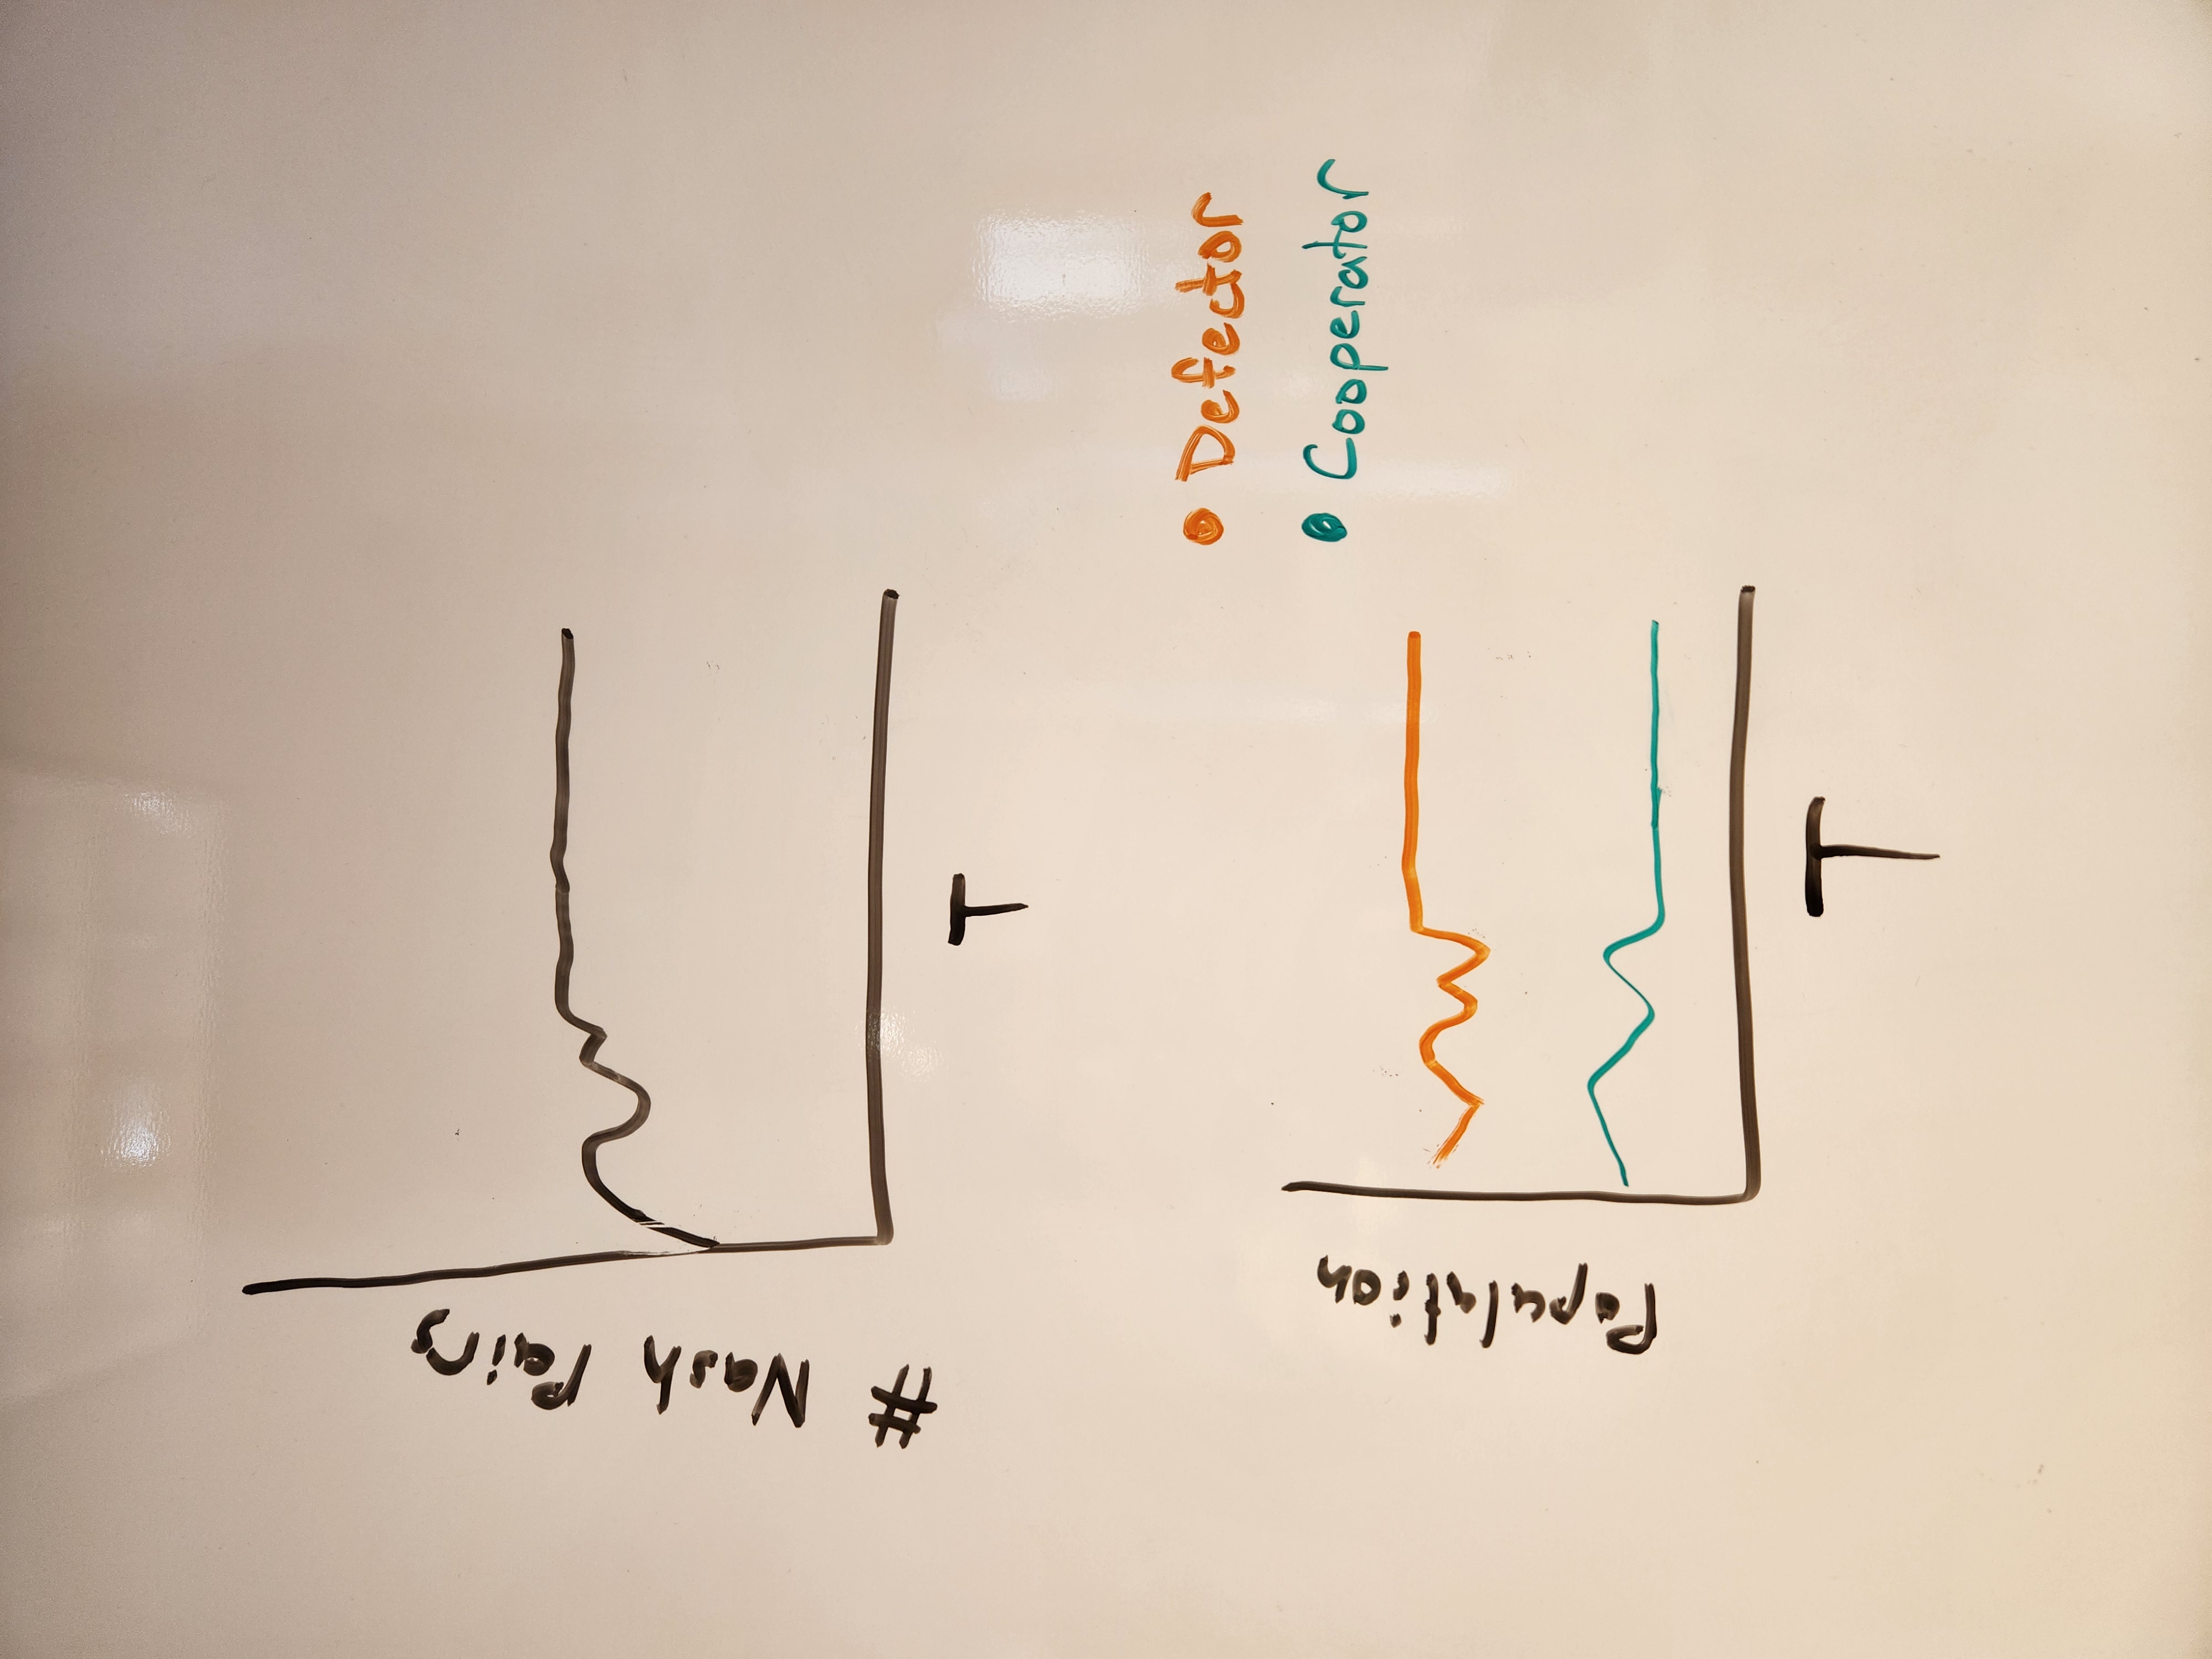 # Nash Pairs
T
Defector
Cooperator
Population
T